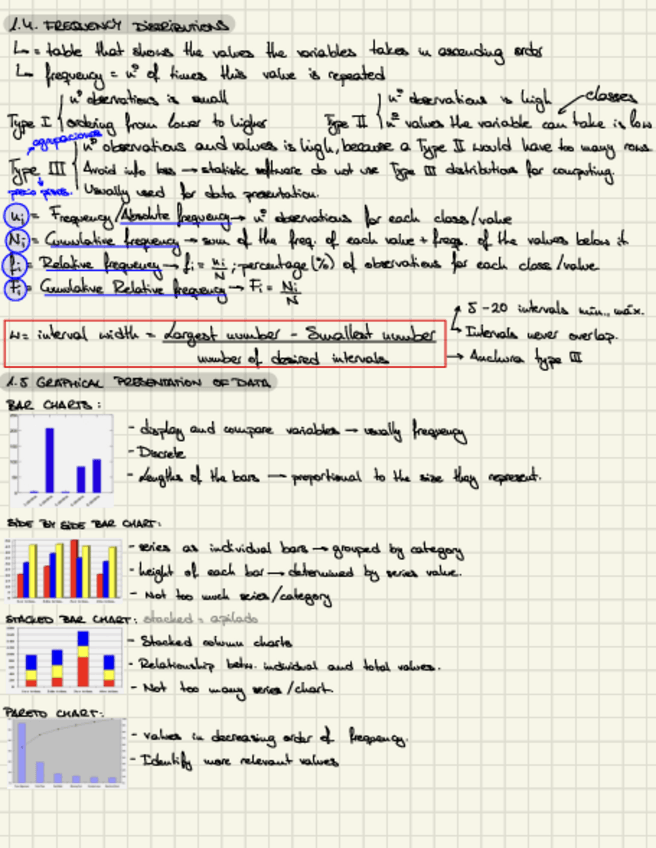 1.4. FREQUENCY DISTRIBUTIONS
↳ = table that shows the values the variables takes in ascending order
↳ frequency = nº of times this value is repeated
Type I { nº observations is small
ordering from lower to higher
Type II { nº observations is high classes
nº values the variable can take is low
agrupaciones
Type III | nº observations and values is high, because a Type II would have too many rows
Avoid info loss → statistic software do not use Type III distributions for computing.
Usually used for data presentation.
ni = Frequency/Absolute frequency → nº observations for each class/value
Ni = Cumulative frequency → sum of the freq. of each value + freqs. of the values below it
fi = Relative frequency → fi = ni/N ; percentage (%) of observations for each class/value
Fi = Cumulative Relative frequency → Fi = Ni/N
w = interval width = Largest number - Smallest number
number of desired intervals
5-20 intervals mín., máx.
Intervals never overlap.
→ Anchura type III
1.5 GRAPHICAL PRESENTATION OF DATA
BAR CHARTS:
- display and compare variables → usually frequency
- Discrete
- Lengths of the bars → proportional to the size they represent.
SIDE BY SIDE BAR CHART:
- series as individual bars → grouped by category
- height of each bar → determined by series value.
- Not too much series/category
STACKED BAR CHART: stacked = apilado
- Stacked column charts
- Relationship betw. individual and total values.
- Not too many series/chart
PARETO CHART:
- values in decreasing order of frequency.
- Identify more relevant values